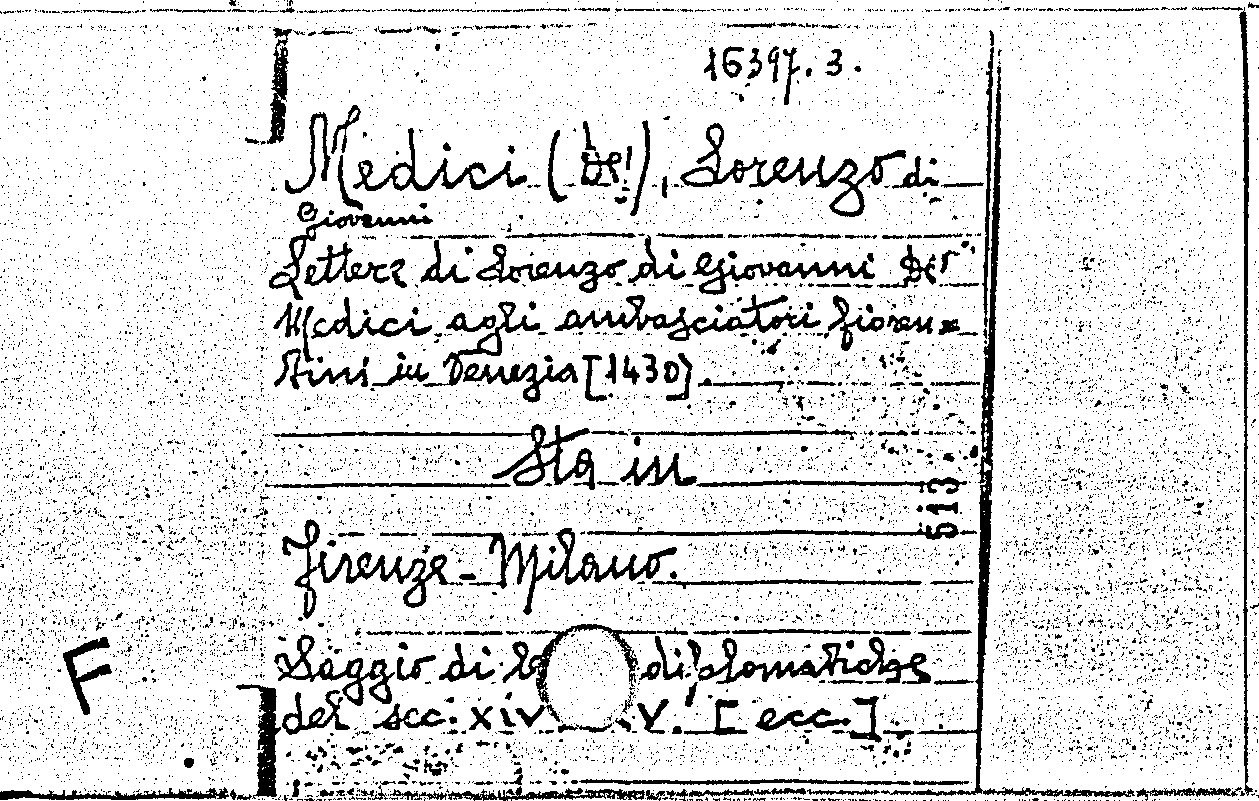 16397.3.
Medici (de'), Lorenzo di
Giovanni
Lettere di Lorenzo di Giovanni De'
Medici agli ambasciatori fioren=
tini in Venezia [1430].
Sta in
513.
Firenze - Milano.
Saggio di diplomatiche
del sec. XIV V. [ecc.]
F